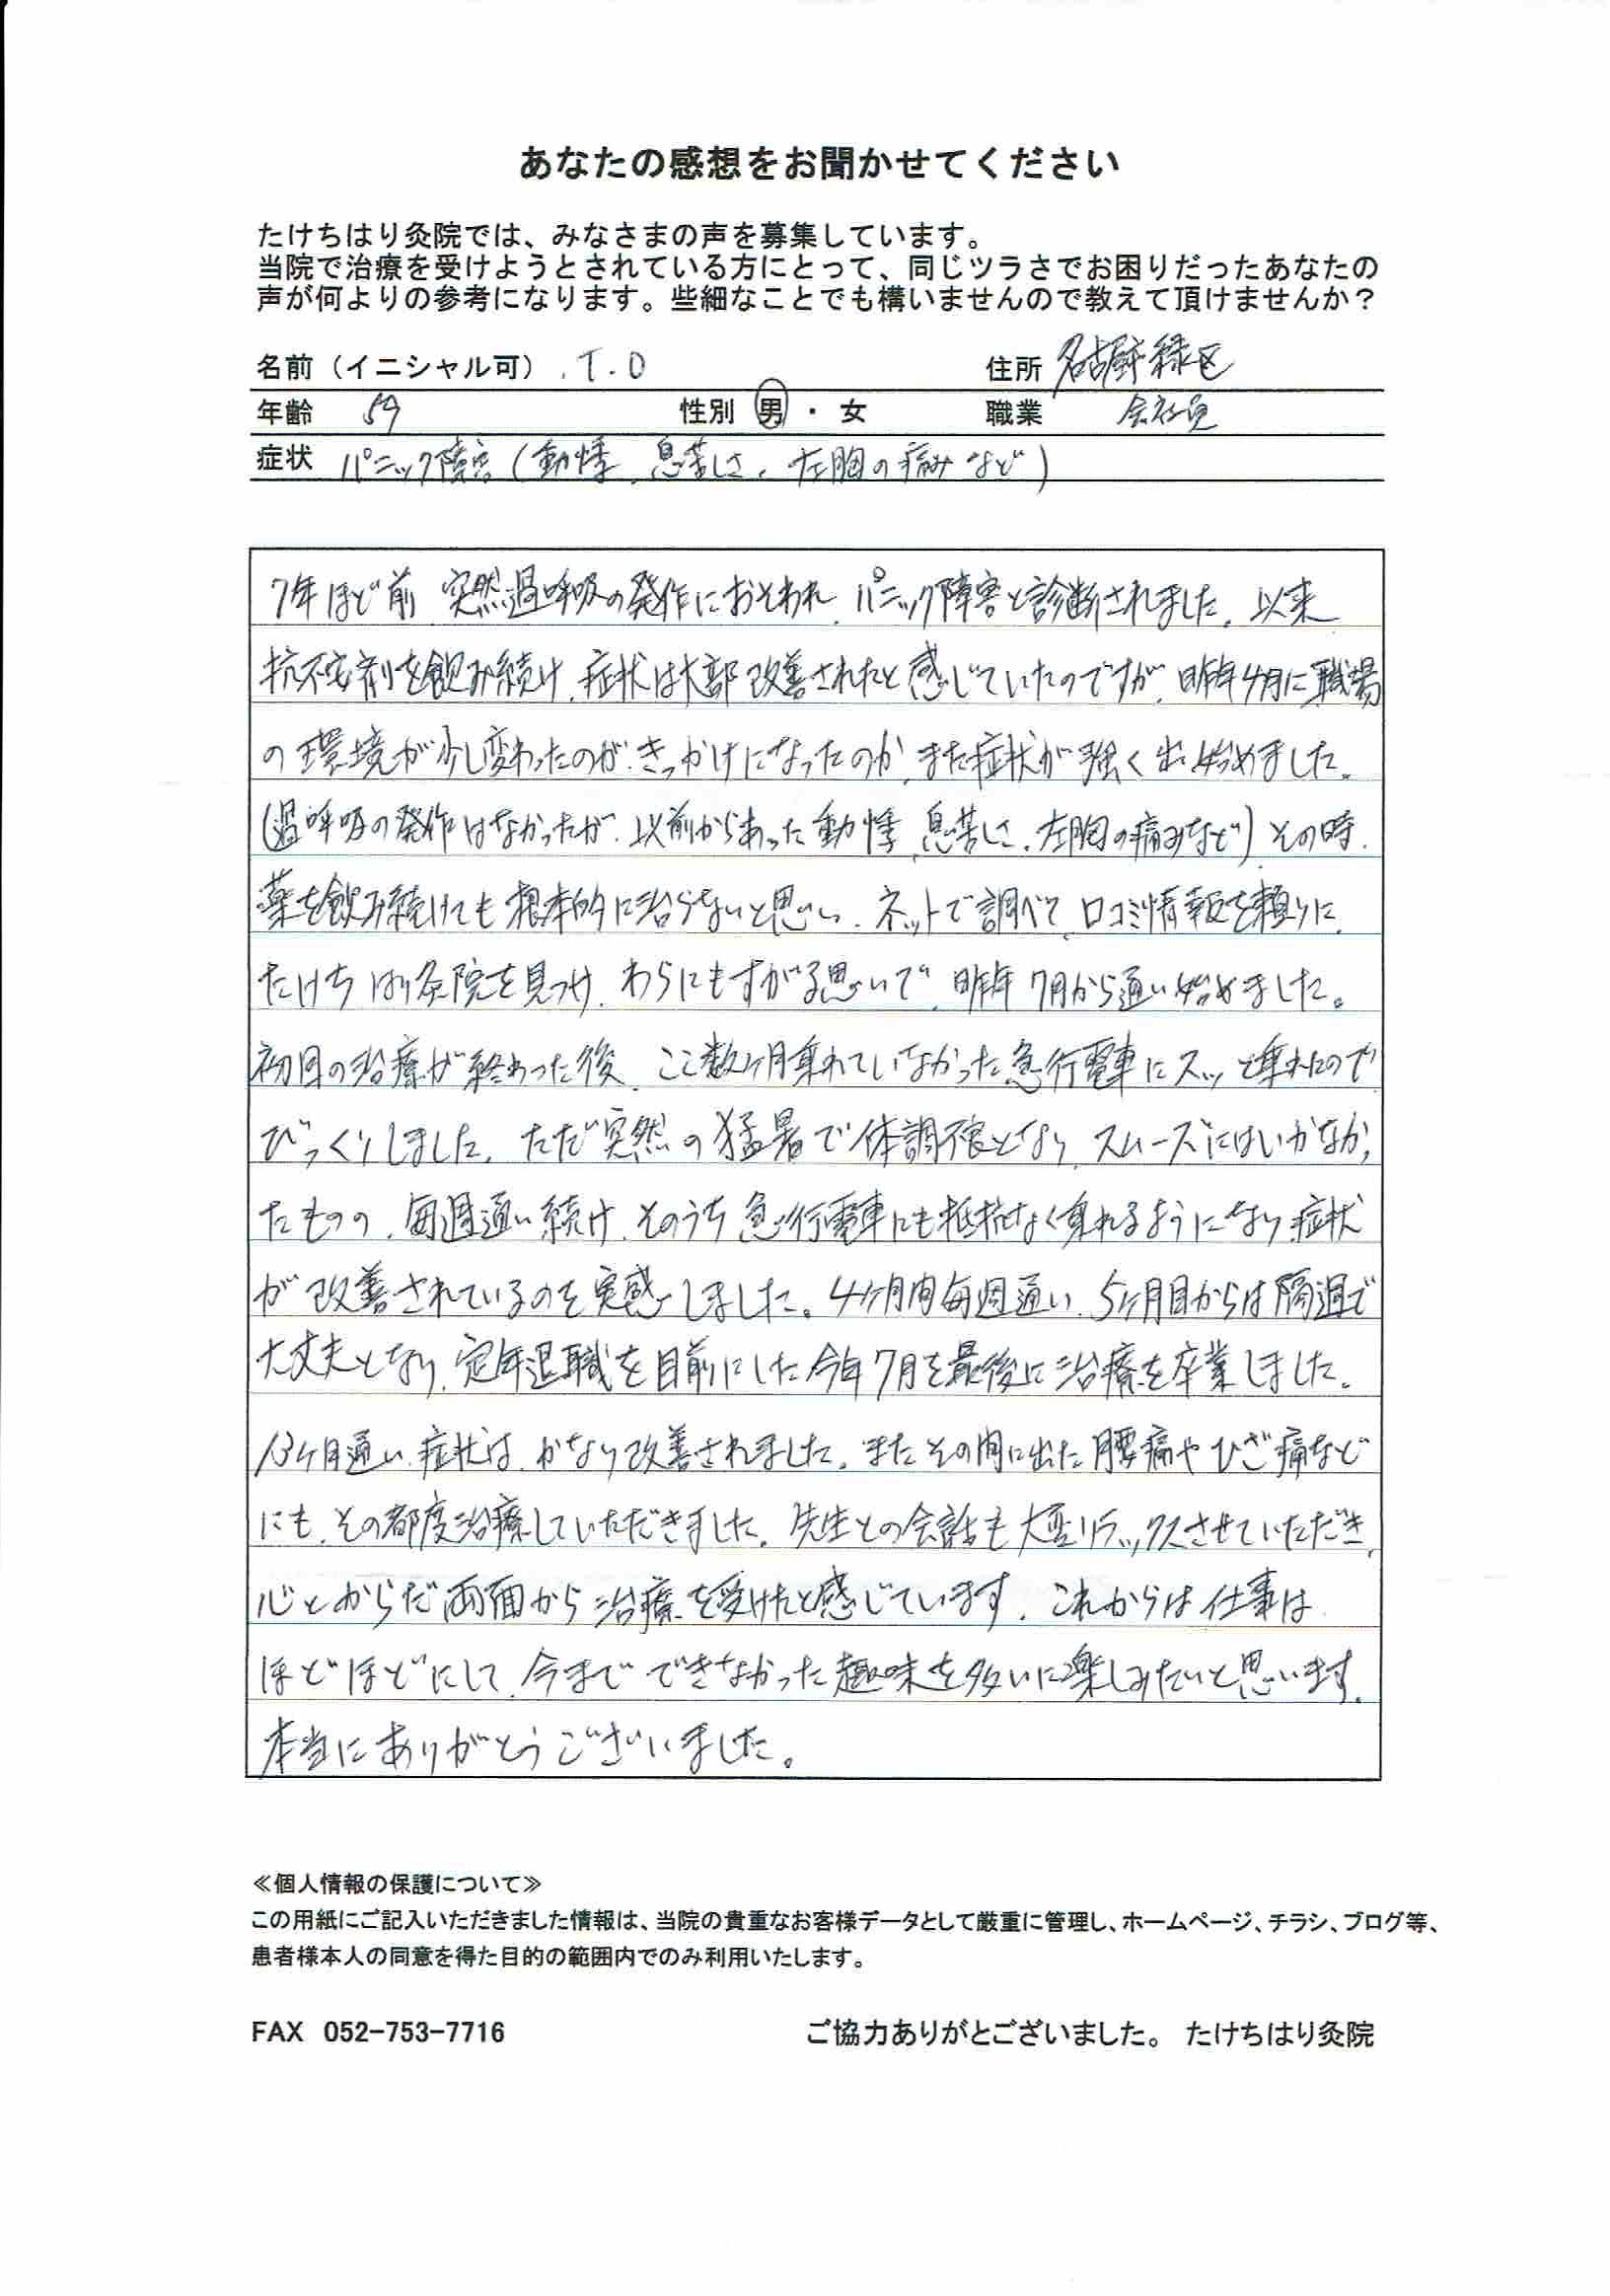 あなたの感想をお聞かせてください
たけちはり灸院では、みなさまの声を募集しています。
当院で治療を受けようとされている方にとって、同じツラさでお困りだったあなたの
声が何よりの参考になります。些細なことでも構いませんので教えて頂けませんか?
名前（イニシャル可） . T.O 住所 名古屋市緑区
年齢 59 性別 男 ・ 女 職業 会社員
症状 パニック障害（動悸、息苦しさ、左胸の痛みなど）
7年ほど前、突然過呼吸の発作におそわれ、パニック障害と診断されました。以来
抗不安剤を飲み続け、症状は大部改善されたと感じていたのですが、昨年4月に職場
の環境が少し変わったのが、きっかけになったのか、また症状が強く出始めました。
（過呼吸の発作はなかったが、以前からあった動悸、息苦しさ、左胸の痛みなど）その時、
薬を飲み続けても根本的に治らないと思い、ネットで調べて、口コミ情報を頼りに、
たけちはり灸院を見つけ、わらにもすがる思いで、昨年7月から通い始めました。
初回の治療が終わった後、ここ数ヶ月乗れていなかった急行電車にスッと乗れたので
びっくりしました。ただ突然の猛暑で体調不良となり、スムーズにはいかなかっ
たものの、毎週通い続け、そのうち急行電車にも抵抗なく乗れるようになり、症状
が改善されているのを実感しました。4ヶ月間毎週通い、5ヶ月目からは隔週で
大丈夫となり、定年退職を目前にした今年7月を最後に治療を卒業しました。
13ヶ月通い、症状は、かなり改善されました。またその間に出た腰痛やひざ痛など
にも、その都度治療していただきました。先生との会話も大変リラックスさせていただき、
心とからだ両面から治療を受けたと感じています。これからは仕事は
ほどほどにして、今までできなかった趣味を多いに楽しみたいと思います。
本当にありがとうございました。
≪個人情報の保護について≫
この用紙にご記入いただきました情報は、当院の貴重なお客様データとして厳重に管理し、ホームページ、チラシ、ブログ等、
患者様本人の同意を得た目的の範囲内でのみ利用いたします。
FAX 052-753-7716 ご協力ありがとございました。 たけちはり灸院